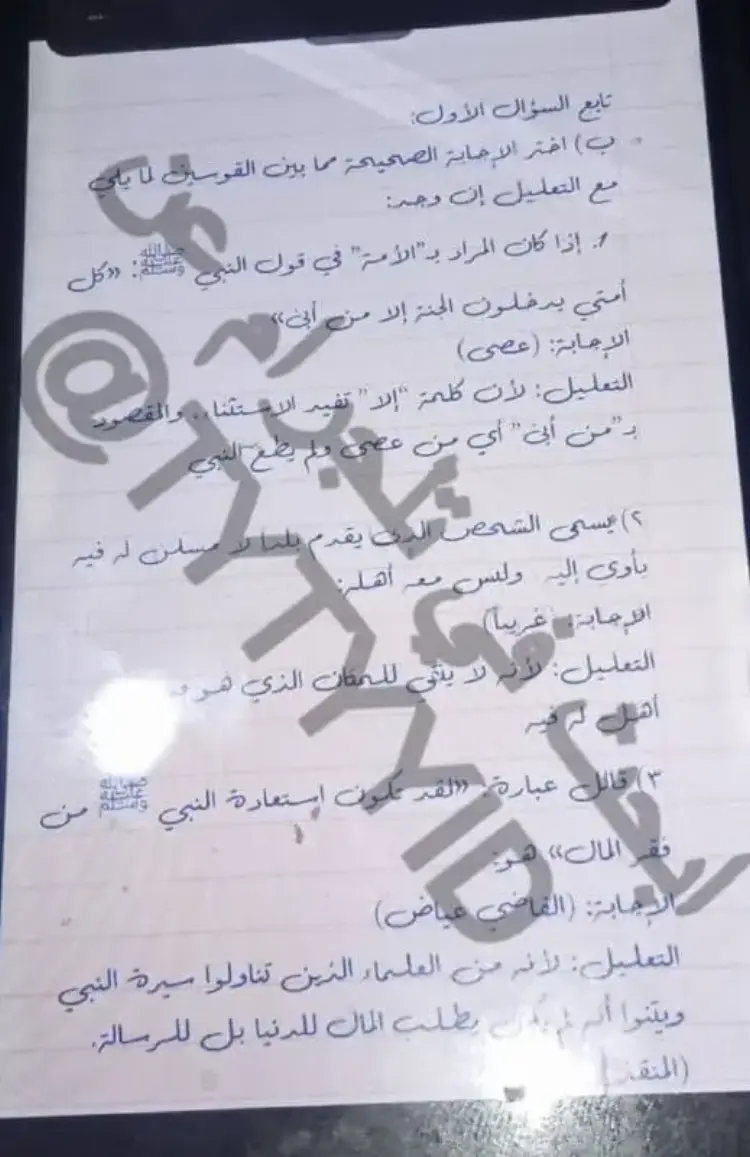 تابع السؤال الأول:
ب) اختر الإجابة الصحيحة مما بين القوسين لما يلي
مع التعليل إن وجد:
1. إذا كان المراد بـ"الأمة" في قول النبي ﷺ: «كل
أمتي يدخلون الجنة إلا من أبى»
الإجابة: (عصى)
التعليل: لأن كلمة "إلا" تفيد الاستثناء، والمقصود
بـ"من أبى" أي من عصى ولم يطع النبي
٢) يسمى الشخص الذي يقدم بلدا لا مسكن له فيه
يأوي إليه وليس معه أهله:
الإجابة: (غريباً)
التعليل: لأنه لا ينتمي للمكان الذي هو
أهل له فيه
٣) قائل عبارة: «لقد تكون استعاذة النبي ﷺ من
فقر المال» هو:
الإجابة: (القاضي عياض)
التعليل: لأنه من العلماء الذين تناولوا سيرة النبي
وبينوا أنه لم يكن يطلب المال للدنيا بل للرسالة.
(المنقذ
@TYTYYID
ابحث في تليجرام عن